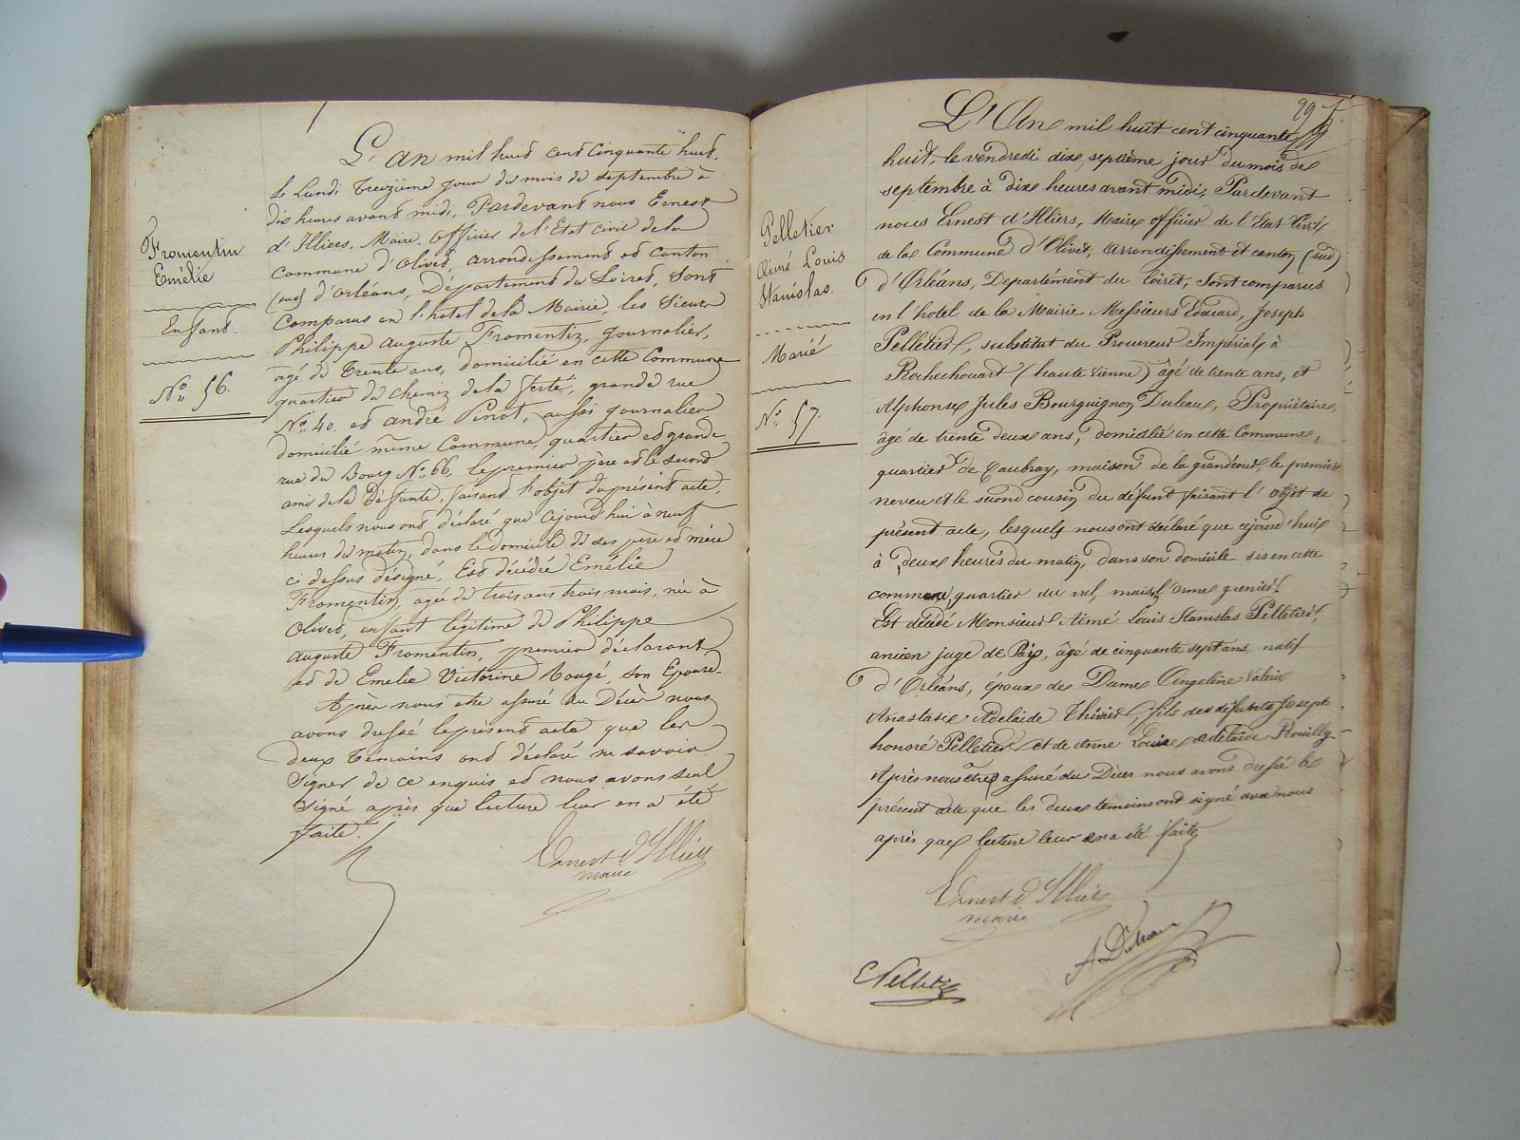 Fromentin
Emélie
Enfant.
No 56.
L'an mil huit cent cinquante huit,
le Lundi treizième jour du mois de septembre à
dix heures avant midi, Pardevant nous Ernest
d'Illiers, Maire, officier de l'Etat civil de la
Commune d'Olivet, arrondissement et canton
(sud) d'Orléans, Département du Loiret, Sont
Comparus en l'hôtel de la Mairie, les Sieurs
Philippe Auguste Fromentin, journalier,
agé de trente ans, domicilié en cette Commune
quartier du chemin de la ferté, grande rue
No 40. et andré Pinot, aussi journalier
domicilié même Commune, quartier et grande
rue du Bourg No 66, le premier père et le second
ami de la Défunte, faisant l'objet du présent acte,
Lesquels nous ont déclaré que cejourd'hui à neuf
heures du matin, dans le domicile de ses père et mère
ci dessus désigné, Est décédée Emélie
Fromentin, agée de trois ans trois mois, née à
Olivet, enfant légitime de Philippe
Auguste Fromentin, premier déclarant
et de Emelie Victorine Rougé, son Epouse.
Après nous etre assuré du Décès nous
avons dressé le présent acte que les
deux témoins ont déclaré ne savoir
Signer de ce enquis et nous avons seul
Signé après que lecture leur en a été
faite.
Ernest d'Illiers
maire
297
Pelletier
Aimé Louis
Stanislas.
Marié
No 57.
L'An mil huit cent cinquante
huit, le vendredi dix septième jour du mois de
septembre à dix heures avant midi, Pardevant
nous Ernest d'Illiers, Maire officier de l'Etat Civil
de la Commune d'Olivet, arrondissement et canton (sud)
d'Orléans, Département du Loiret, sont comparus
en l'hotel de la Mairie Messieurs Edouard, Joseph
Pelletier, substitut du Procureur Impérial à
Rochechouart (haute vienne) âgé de trente ans, et
Alphonse Jules Bourguignon Duhau, Propriétaire,
âgé de trente deux ans, domicilié en cette Commune,
quartier de Caubray, maison de la grandcour, le premier
neveu et le second cousin du défunt faisant l'objet du
présent acte, lesquels nous ont déclaré que cejourd'hui
à deux heures du matin, dans son domicile sis en cette
commune, quartier du val, maison orme grenier,
Est décédé Monsieur Aimé Louis Stanislas Pelletier,
ancien juge de Paix, âgé de cinquante sept ans natif
d'Orléans, époux de Dame Angeline Valérie
Anastasie Adelaïde Thirier, fils des défunts Joseph
honoré Pelletier et de dame Louise adélaïde Rouilly.
Après nous être assuré du Décès nous avons dressé le
présent acte que les deux témoins ont signé avec nous
après que lecture leur en a été faite
Ernest d'Illiers
maire
A Duhau
E Pelletier